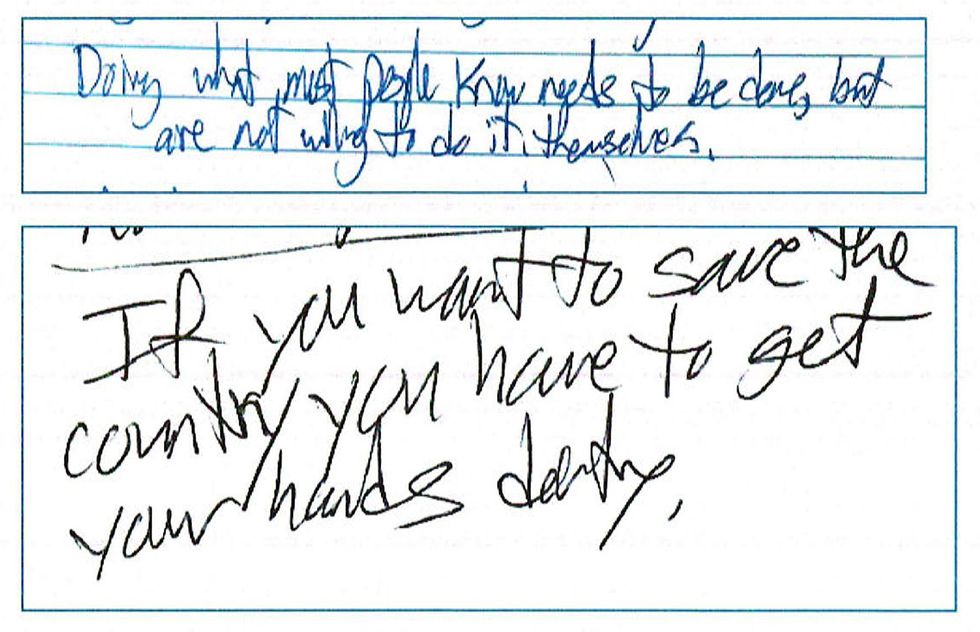 Doing what most people know needs to be done, but
are not willing to do it themselves.
If you want to save the
country you have to get
your hands dirty.